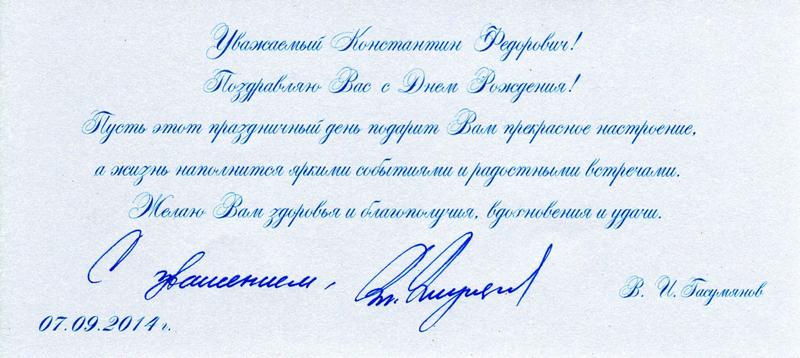 Уважаемый Константин Федорович!
Поздравляю Вас с Днем Рождения!
Пусть этот праздничный день подарит Вам прекрасное настроение,
а жизнь наполнится яркими событиями и радостными встречами.
Желаю Вам здоровья и благополучия, вдохновения и удачи.
С уважением,
В. И. Гасумянов
07.09.2014 г.